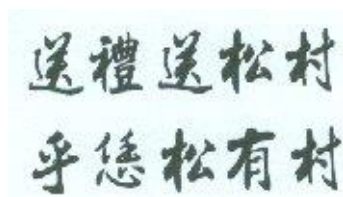 送禮送松村
乎恁松有村